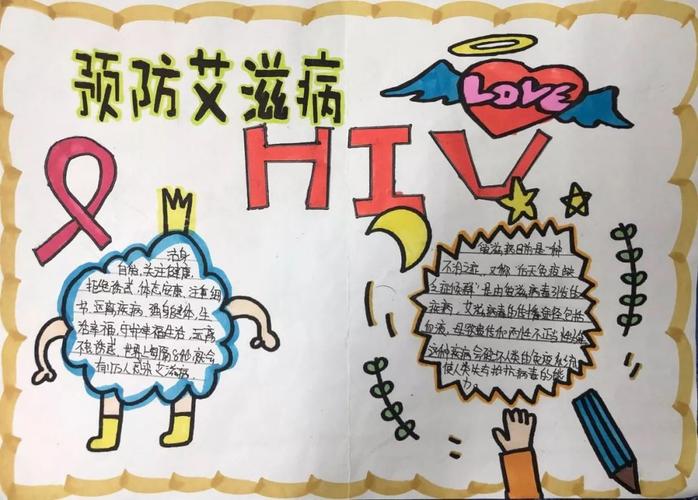 预防艾滋病
LOVE
HIV
洁身
自爱,关注健康,
拒绝诱惑,体志安康,注重细
节,远离疾病,强身健体,生
活幸福,守护幸福生活,远离
不良诱惑,世界上每隔8秒就会
有1万人感染艾滋病。
艾滋病日常是一种
不治之症,又称"后天免疫缺
乏症候群"是由艾滋病毒引发的
疾病,艾滋病毒的传播途径包括
血液,母婴遗传和两性不正当性接
这种疾病会破坏人类的免疫系统
使人类失去抵抗病毒的能
力。